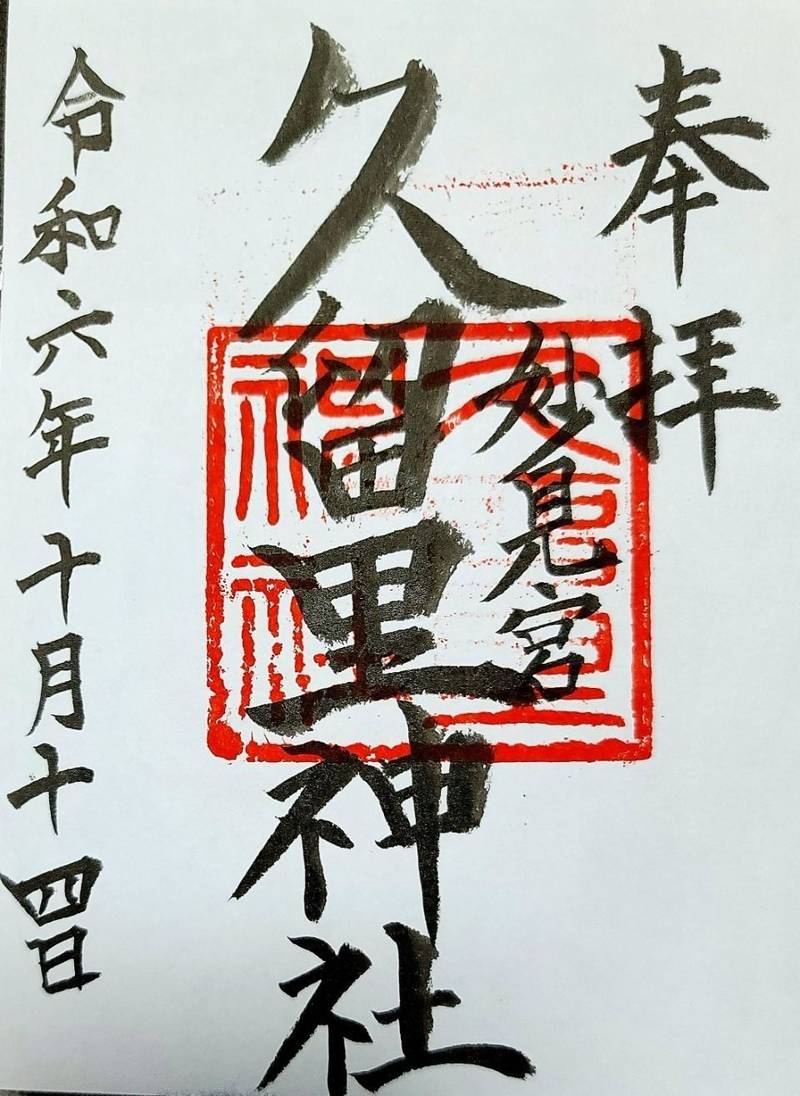 奉拝
妙見宮
久留里神社
令和六年十月十四日